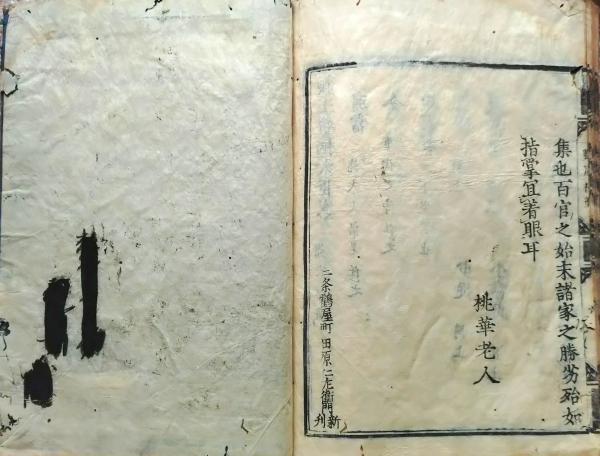 集也百官之始末諸家之勝劣殆如
指掌宜著眼耳
桃華老人
二条鶴屋町田原仁左衞門新刊